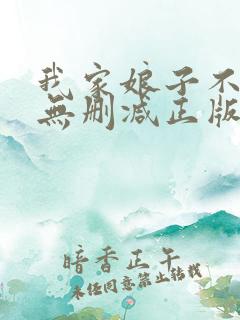 我家娘子不
無删减正版
暗香正午
未经同意禁止转载